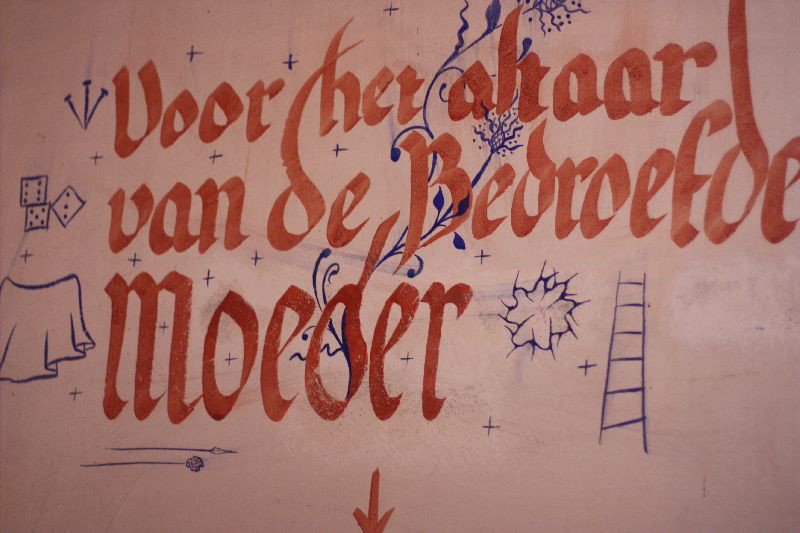 Voor het altaar
van de Bedroefde
moeder